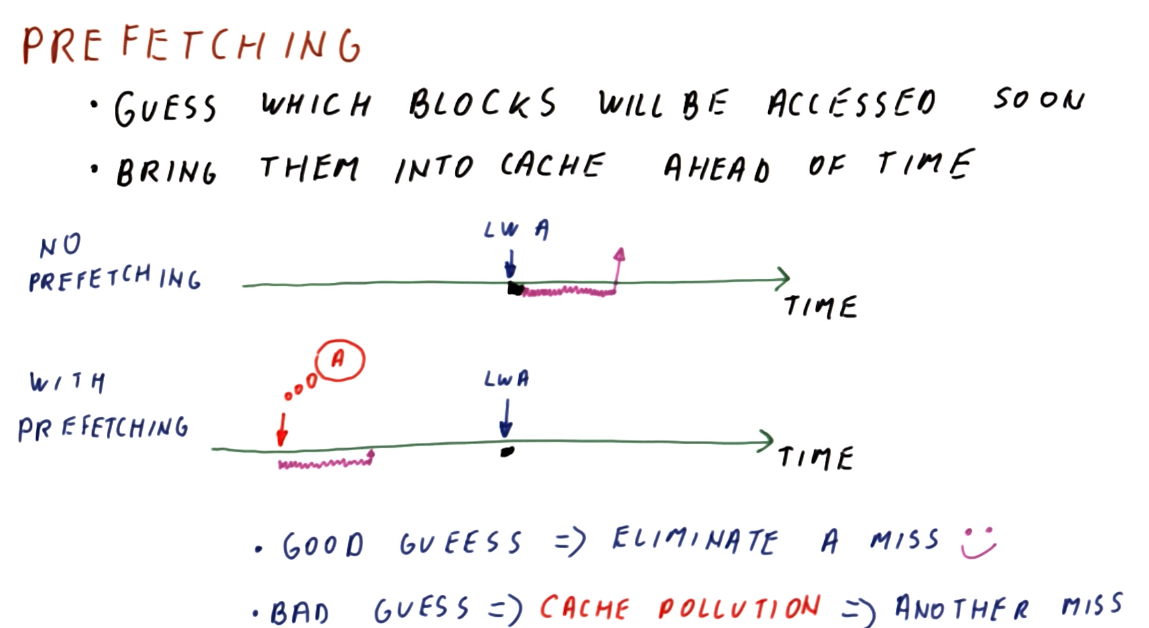 PREFETCHING
• GUESS WHICH BLOCKS WILL BE ACCESSED SOON
• BRING THEM INTO CACHE AHEAD OF TIME
LW A
NO
PREFETCHING
TIME
A
WITH
PREFETCHING
LWA
TIME
• GOOD GUEESS => ELIMINATE A MISS
• BAD GUESS => CACHE POLLUTION => ANOTHER MISS